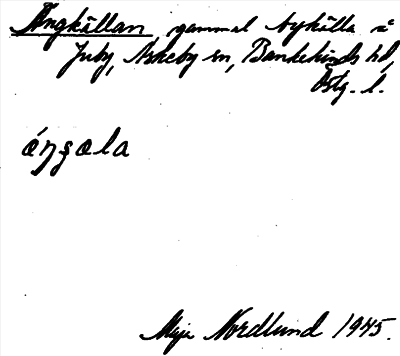 Ängkällan, gammal bykälla i
Juby, Askeby sn, Bankekinds hd,
Östg. l.
æ´ŋɕæla
Maja Nordlund 1945.